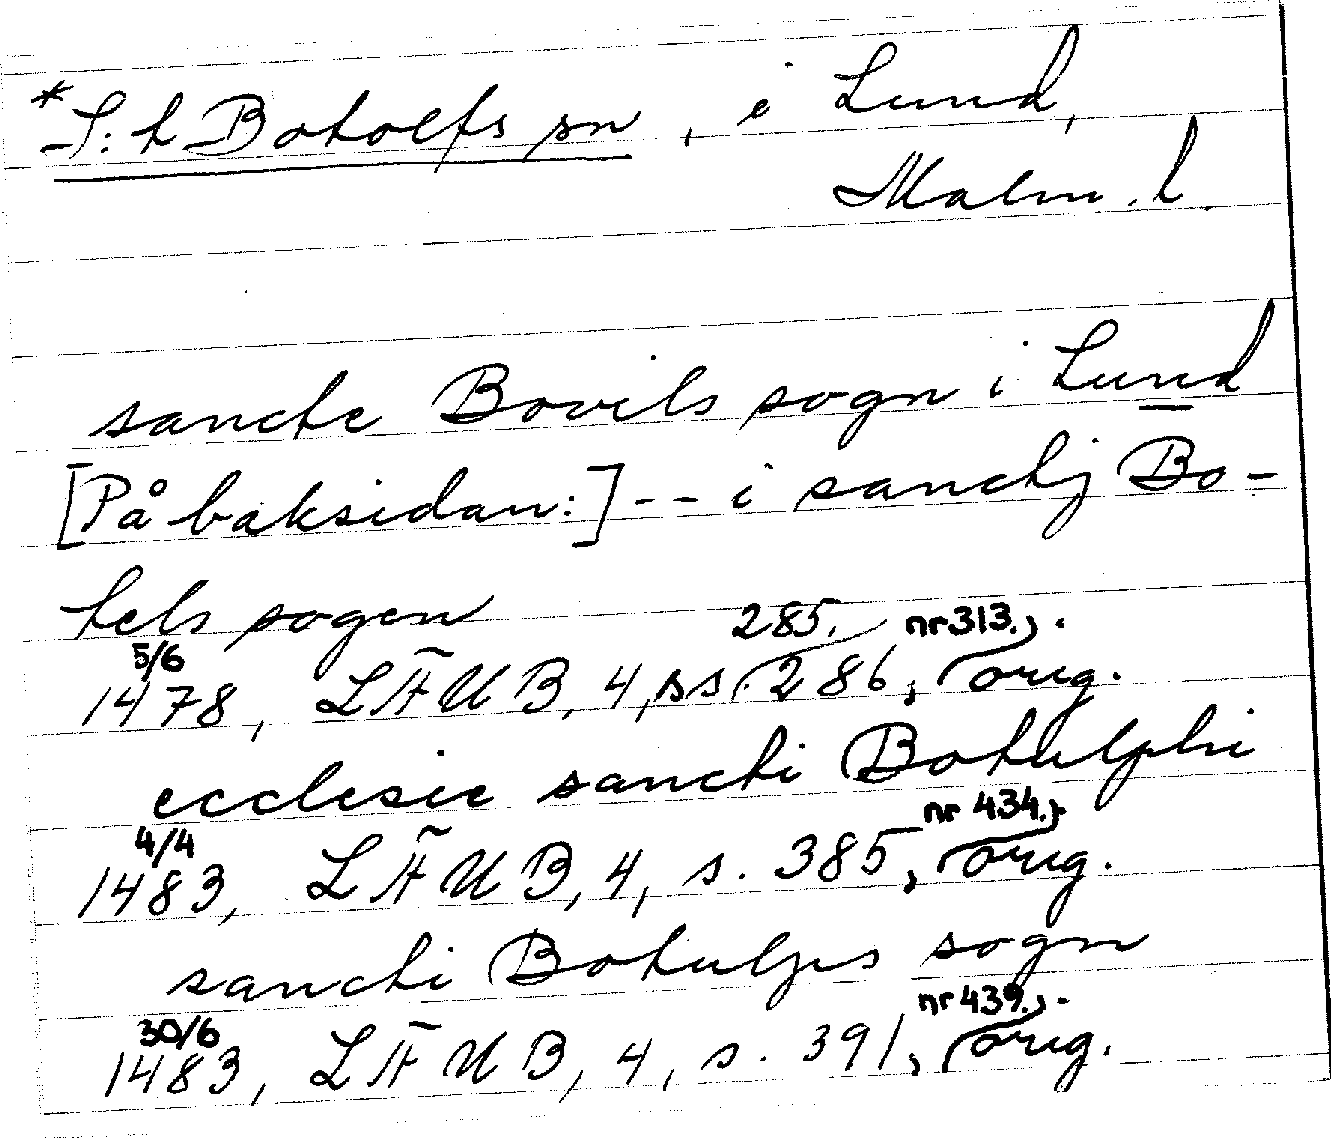 *S:t Botolfs sn, i Lund,
Malm. l.
sancte Bovils sogn i Lund
[På baksidan:] -- i sanctj Bo-
tels sogen
285. nr 313.,.
5/6
1478, LÄUB, 4, ss. 286, orig.
ecclesie sancti Botulphi
nr 434.,
4/4
1483, LÄUB, 4, s. 385, orig.
sancti Botulps sogn
nr 439.,.
30/6
1483, LÄUB, 4, s. 391, orig.